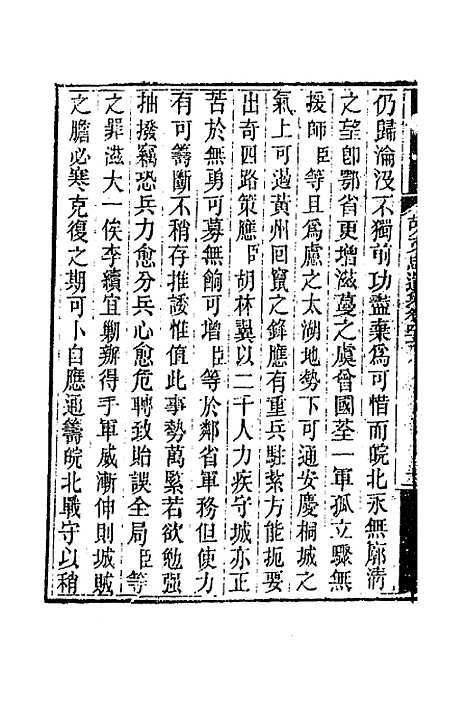 仍歸淪没不獨前功盡棄爲可惜而皖北永無廓清
之望卽鄂省更增滋蔓之虞曾國荃一軍孤立驟無
援師臣等且爲慮之太湖地勢下可通安慶桐城之
氣上可遏黃州回竄之鋒應有重兵駐紮方能扼要
出奇四路策應臣胡林翼以二千人力疾守城亦正
苦於無勇可募無餉可增臣等於鄰省軍務但使力
有可籌斷不稍存推諉惟值此事勢萬緊若欲勉强
抽撥竊恐兵力愈分兵心愈危轉致貽誤全局臣等
之罪滋大一俟李續宜勦辦得手軍威漸伸則城賊
之膽必寒克復之期可卜自應通籌皖北戰守以稍